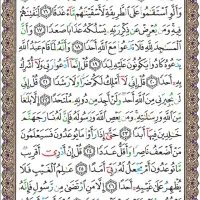 وَأَلَّوِ ٱسْتَقَٰمُوا۟ عَلَى ٱلطَّرِيقَةِ لَأَسْقَيْنَٰهُم مَّآءً غَدَقًا ١٦ لِّنَفْتِنَهُمْ
فِيهِ وَمَن يُعْرِضْ عَن ذِكْرِ رَبِّهِۦ يَسْلُكْهُ عَذَابًا صَعَدًا ١٧ وَأَنَّ
ٱلْمَسَٰجِدَ لِلَّهِ فَلَا تَدْعُوا۟ مَعَ ٱللَّهِ أَحَدًا ١٨ وَأَنَّهُۥ لَمَّا قَامَ عَبْدُ ٱللَّهِ
يَدْعُوهُ كَادُوا۟ يَكُونُونَ عَلَيْهِ لِبَدًا ١٩ قُلْ إِنَّمَآ أَدْعُوا۟ رَبِّى وَلَآ أُشْرِكُ
بِهِۦٓ أَحَدًا ٢٠ قُلْ إِنِّى لَآ أَمْلِكُ لَكُمْ ضَرًّا وَلَا رَشَدًا ٢١ قُلْ إِنِّى
لَن يُجِيرَنِى مِنَ ٱللَّهِ أَحَدٌ وَلَنْ أَجِدَ مِن دُونِهِۦ مُلْتَحَدًا ٢٢ إِلَّا بَلَٰغًا
مِّنَ ٱللَّهِ وَرِسَٰلَٰتِهِۦ وَمَن يَعْصِ ٱللَّهَ وَرَسُولَهُۥ فَإِنَّ لَهُۥ نَارَ جَهَنَّمَ
خَٰلِدِينَ فِيهَآ أَبَدًا ٢٣ حَتَّىٰٓ إِذَا رَأَوْا۟ مَا يُوعَدُونَ فَسَيَعْلَمُونَ
مَنْ أَضْعَفُ نَاصِرًا وَأَقَلُّ عَدَدًا ٢٤ قُلْ إِنْ أَدْرِىٓ أَقَرِيبٌ
مَّا تُوعَدُونَ أَمْ يَجْعَلُ لَهُۥ رَبِّىٓ أَمَدًا ٢٥ عَٰلِمُ ٱلْغَيْبِ فَلَا
يُظْهِرُ عَلَىٰ غَيْبِهِۦٓ أَحَدًا ٢٦ إِلَّا مَنِ ٱرْتَضَىٰ مِن رَّسُولٍ فَإِنَّهُۥ